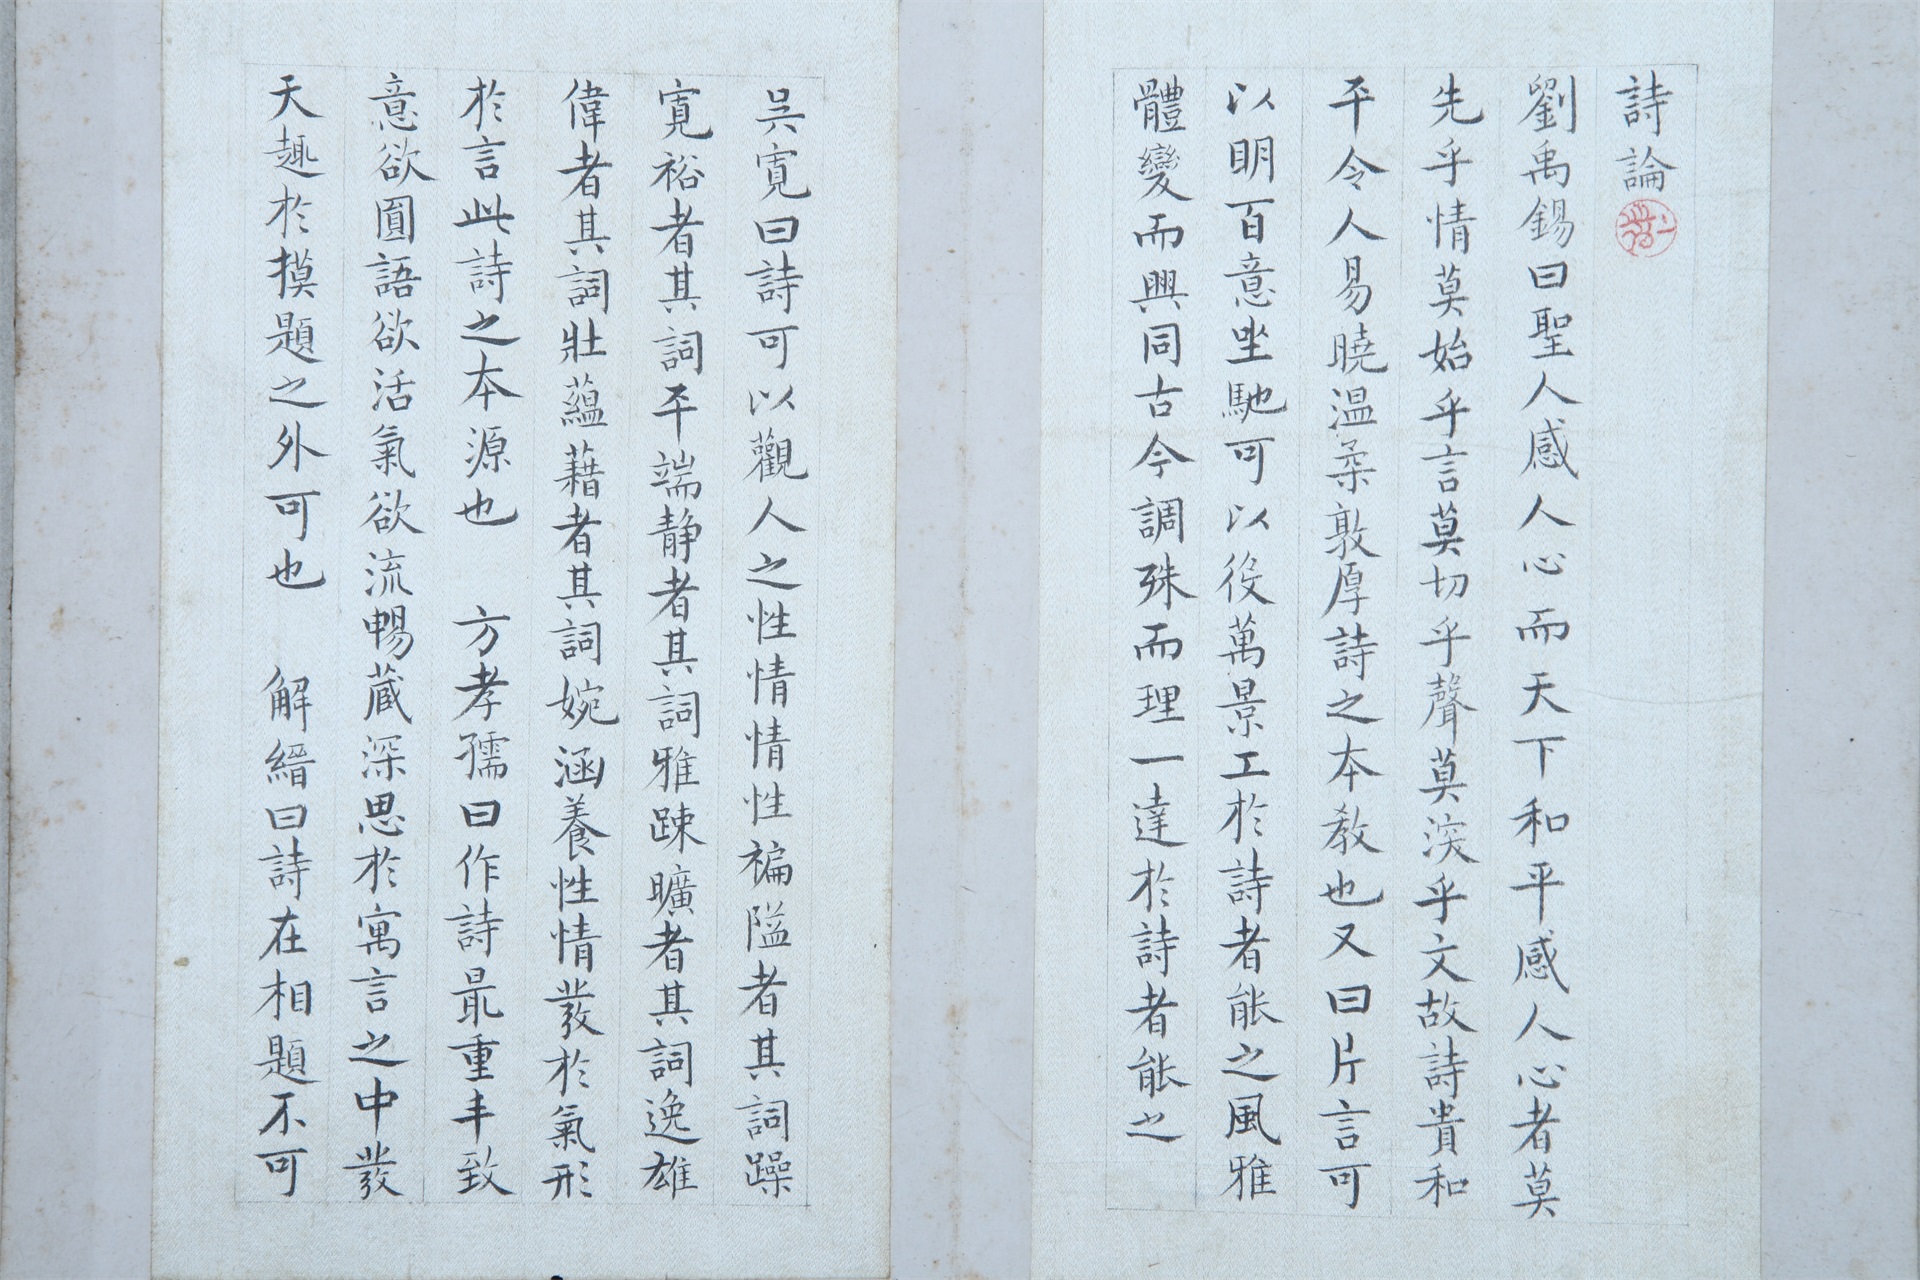 詩論
劉禹錫曰聖人感人心而天下和平感人心者莫
先乎情莫始乎言莫切乎聲莫深乎文故詩貴和
平令人易曉温柔敦厚詩之本教也又曰片言可
以明百意坐馳可以役萬景工於詩者能之風雅
體變而興同古今調殊而理一達於詩者能之
吳寬曰詩可以觀人之性情情性褊隘者其詞躁
寬裕者其詞平端靜者其詞雅踈曠者其詞逸雄
偉者其詞壯蘊藉者其詞婉涵養性情發於氣形
於言此詩之本源也 方孝孺曰作詩最重丰致
意欲圓語欲活氣欲流暢蔵深思於寓言之中發
天趣於摸題之外可也 解縉曰詩在相題不可